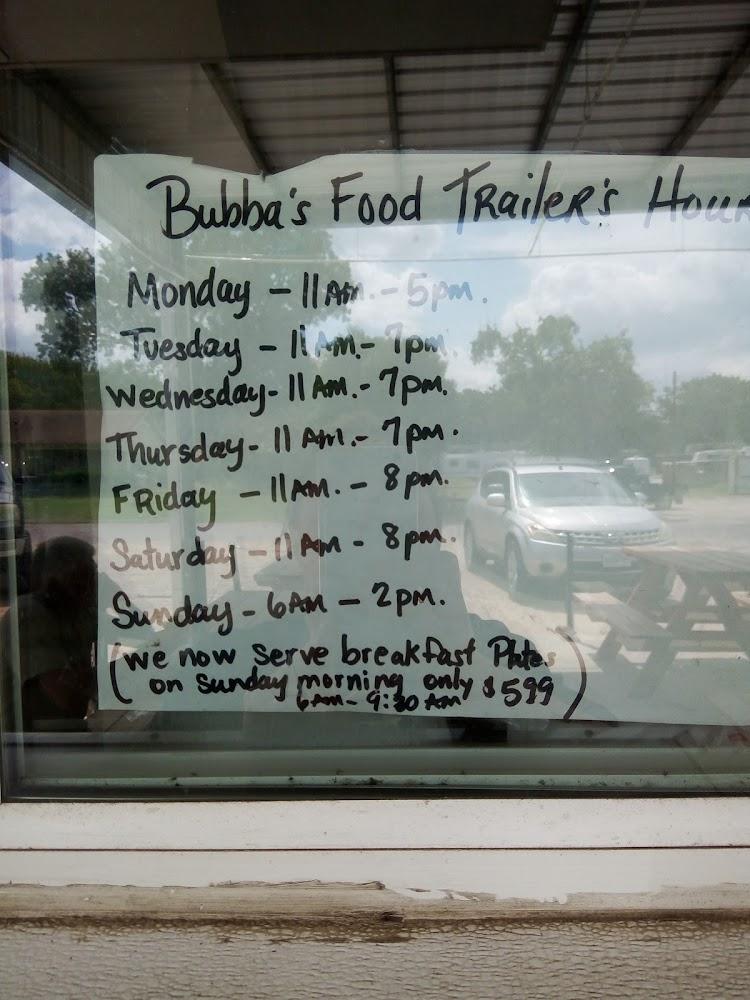 Bubba's Food Trailer's Hour
Monday - 11 Am. - 5pm.
Tuesday - 11 Am. - 7pm.
Wednesday - 11 Am. - 7pm.
Thursday - 11 Am. - 7pm.
Friday - 11 Am. - 8pm.
Saturday - 11 Am - 8pm.
Sunday - 6 Am - 2pm.
(we now serve breakfast Plates
on Sunday morning only $599)
6 Am - 9:30 Am